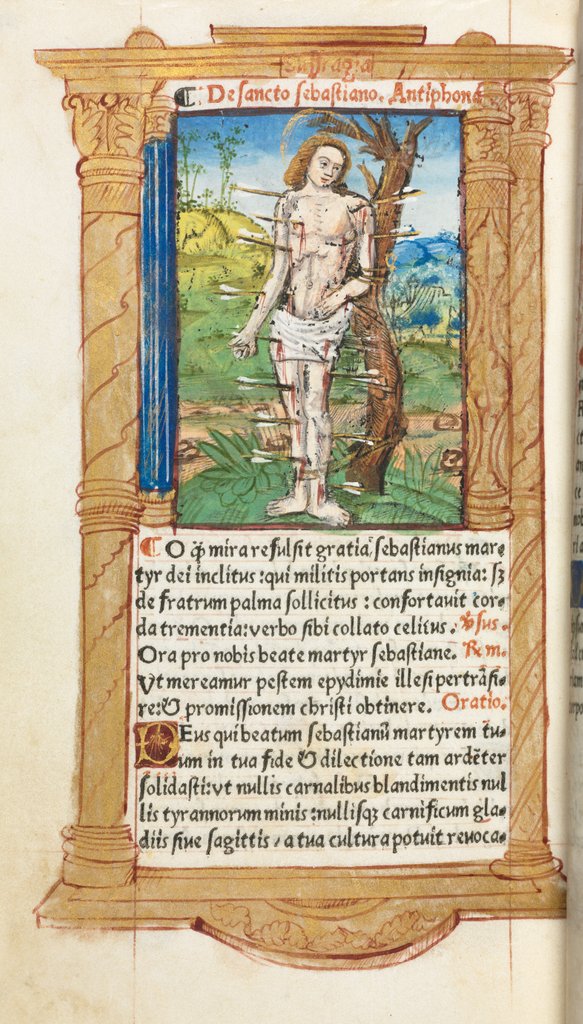 Suffragia
De sancto sebastiano. Antiphona
O q̃ mira refulsit gratia, sebastianus mar-
tyr dei inclitus : qui militis portans insignia: sꝫ
de fratrum palma sollicitus : confortauit cor-
da trementia: verbo sibi collato celitus. ℣sus.
Ora pro nobis beate martyr sebastiane. Rem.
Vt mereamur pestem epydimie illesi pertrãsi-
re: & promissionem christi obtinere. Oratio.
DEus qui beatum sebastianũ martyrem tu-
um in tua fide & dilectione tam ardẽter
solidasti: vt nullis carnalibus blandimentis nul
lis tyrannorum minis : nullisqꝫ carnificum gla-
diis siue sagittis, a tua cultura potuit reuoca-